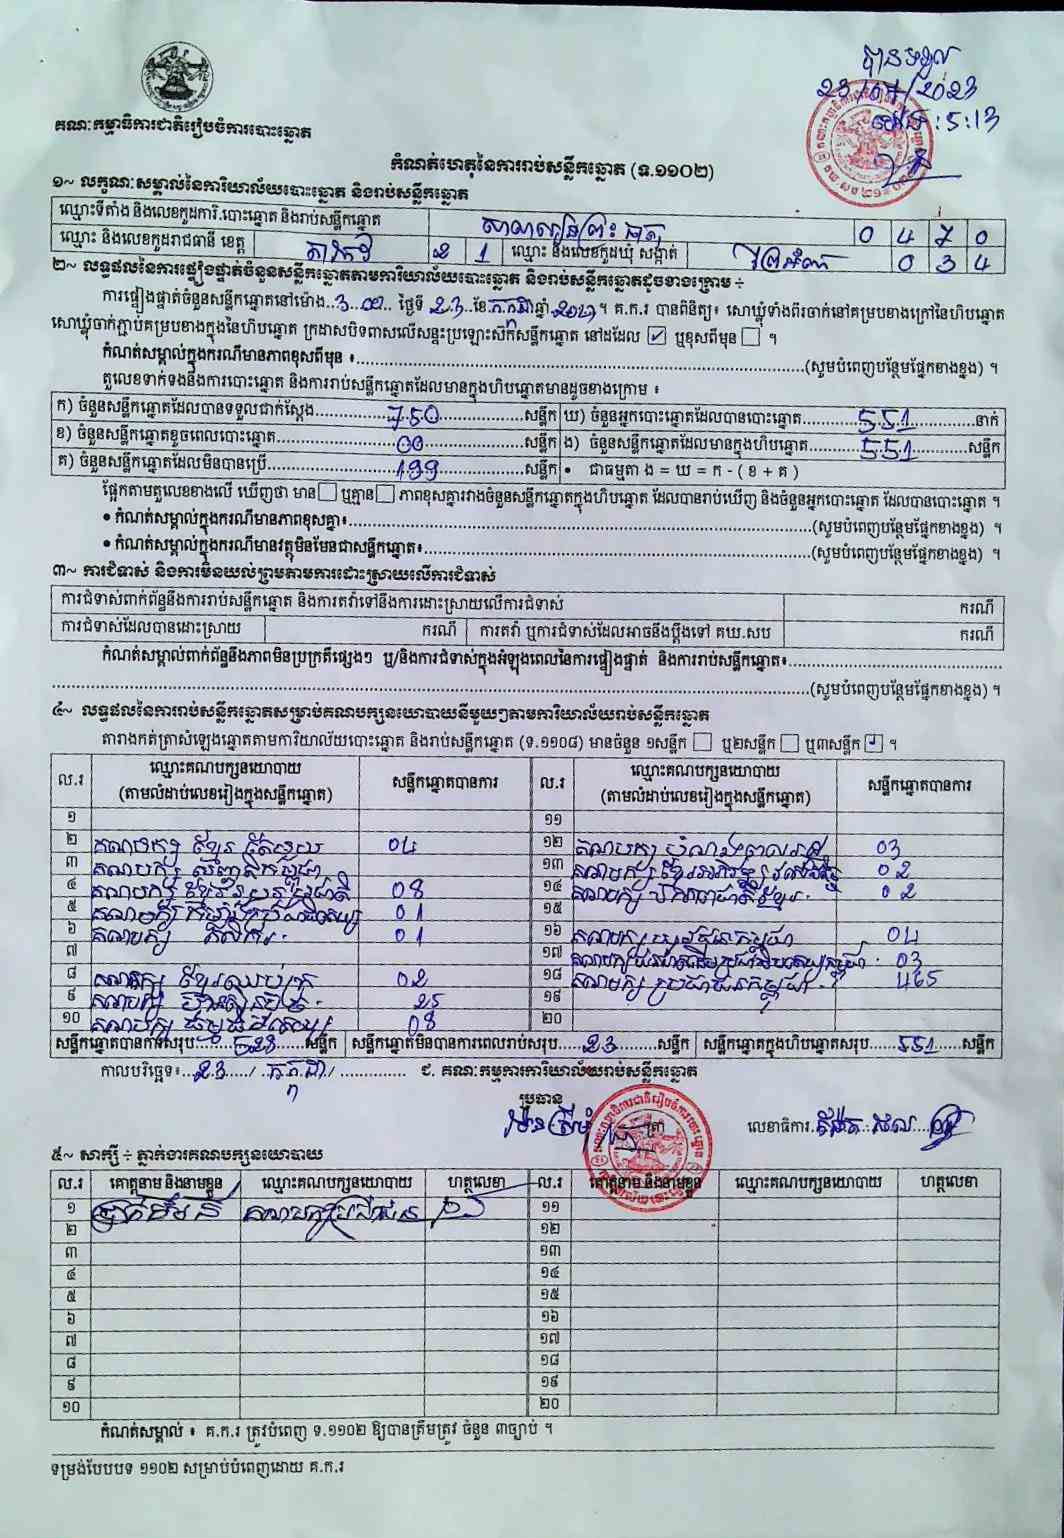 បានទទួល
23/07/2023
ម៉ោង:5:13
គណៈកម្មាធិការជាតិរៀបចំការបោះឆ្នោត
កំណត់ហេតុនៃការរាប់សន្លឹកឆ្នោត (ទ.១១០២)
១~ លក្ខណៈសម្គាល់នៃការិយាល័យបោះឆ្នោត និងរាប់សន្លឹកឆ្នោត
ឈ្មោះទីតាំង និងលេខកូដការិ.បោះឆ្នោត និងរាប់សន្លឹកឆ្នោត 0 4 7 0
ឈ្មោះ និងលេខកូដរាជធានី ខេត្ត តាកែវ 2 1 ឈ្មោះ និងលេខកូដឃុំ សង្កាត់ 0 3 4
២~ លទ្ធផលនៃការផ្ទៀងផ្ទាត់ចំនួនសន្លឹកឆ្នោតតាមការិយាល័យបោះឆ្នោត និងរាប់សន្លឹកឆ្នោតដូចខាងក្រោម ÷
ការផ្ទៀងផ្ទាត់ចំនួនសន្លឹកឆ្នោតនៅម៉ោង..3.00.. ថ្ងៃទី 23..ខែ.កក្កដាឆ្នាំ.2023។ គ.ក.រ បានពិនិត្យ៖ សោឃ្លុំទាំងពីរចាក់នៅគម្របខាងក្រៅនៃហិបឆ្នោត
សោឃ្លុំចាក់ភ្ជាប់គម្របខាងក្នុងនៃហិបឆ្នោត ក្រដាសបិទពាសលើសន្ទះប្រឡោះស៊កសន្លឹកឆ្នោត នៅដដែល ☑ ឬខុសពីមុន ☐ ។
កំណត់សម្គាល់ក្នុងករណីមានភាពខុសពីមុន ៖......(សូមបំពេញបន្ថែមផ្នែកខាងខ្នង) ។
តួលេខទាក់ទងនឹងការបោះឆ្នោត និងការរាប់សន្លឹកឆ្នោតដែលមានក្នុងហិបឆ្នោតមានដូចខាងក្រោម ៖
ក) ចំនួនសន្លឹកឆ្នោតដែលបានទទួលជាក់ស្តែង......750......សន្លឹក ឃ) ចំនួនអ្នកបោះឆ្នោតដែលបានបោះឆ្នោត......551......នាក់
ខ) ចំនួនសន្លឹកឆ្នោតខូចពេលបោះឆ្នោត......00......សន្លឹក ង) ចំនួនសន្លឹកឆ្នោតដែលមានក្នុងហិបឆ្នោត......551......សន្លឹក
គ) ចំនួនសន្លឹកឆ្នោតដែលមិនបានប្រើ......199......សន្លឹក • ជាធម្មតា ង = ឃ = ក - ( ខ + គ )
ផ្អែកតាមតួលេខខាងលើ ឃើញថា មាន ☐ ឬគ្មាន ☐ ភាពខុសគ្នារវាងចំនួនសន្លឹកឆ្នោតក្នុងហិបឆ្នោត ដែលបានរាប់ឃើញ និងចំនួនអ្នកបោះឆ្នោត ដែលបានបោះឆ្នោត ។
• កំណត់សម្គាល់ក្នុងករណីមានភាពខុសគ្នា៖......(សូមបំពេញបន្ថែមផ្នែកខាងខ្នង) ។
• កំណត់សម្គាល់ក្នុងករណីមានវត្ថុមិនមែនជាសន្លឹកឆ្នោត៖......(សូមបំពេញបន្ថែមផ្នែកខាងខ្នង) ។
៣~ ការជំទាស់ និងការមិនយល់ព្រមតាមការដោះស្រាយលើការជំទាស់
ការជំទាស់ពាក់ព័ន្ធនឹងការរាប់សន្លឹកឆ្នោត និងការតវ៉ាទៅនឹងការដោះស្រាយលើការជំទាស់ ករណី
ការជំទាស់ដែលបានដោះស្រាយ ករណី ការតវ៉ា ឬការជំទាស់ដែលអាចនឹងប្តឹងទៅ គឃ.សប ករណី
កំណត់សម្គាល់ពាក់ព័ន្ធនឹងភាពមិនប្រក្រតីផ្សេងៗ ឬ/និងការជំទាស់ក្នុងអំឡុងពេលនៃការផ្ទៀងផ្ទាត់ និងការរាប់សន្លឹកឆ្នោត៖......
......(សូមបំពេញបន្ថែមផ្នែកខាងខ្នង) ។
៤~ លទ្ធផលនៃការរាប់សន្លឹកឆ្នោតសម្រាប់គណបក្សនយោបាយនីមួយៗតាមការិយាល័យរាប់សន្លឹកឆ្នោត
តារាងកត់ត្រាសំឡេងឆ្នោតតាមការិយាល័យបោះឆ្នោត និងរាប់សន្លឹកឆ្នោត (ទ.១១០៨) មានចំនួន ១សន្លឹក ☐ ឬ២សន្លឹក ☐ ឬ៣សន្លឹក ☑ ។
ល.រ ឈ្មោះគណបក្សនយោបាយ (តាមលំដាប់លេខរៀងក្នុងសន្លឹកឆ្នោត) សន្លឹកឆ្នោតបានការ ល.រ ឈ្មោះគណបក្សនយោបាយ (តាមលំដាប់លេខរៀងក្នុងសន្លឹកឆ្នោត) សន្លឹកឆ្នោតបានការ
១ ១១
២ គណបក្ស ខ្មែរ 04 ១២ គណបក្ស 03
៣ គណបក្ស ១៣ គណបក្ស ខ្មែរ 02
៤ គណបក្ស 08 ១៤ គណបក្ស 02
៥ គណបក្ស 01 ១៥
៦ គណបក្ស កសិករ 01 ១៦ គណបក្ស យុវជនកម្ពុជា 04
៧ ១៧ គណបក្ស 03
៨ គណបក្ស ខ្មែរឈប់ក្រ 02 ១៨ គណបក្ស ប្រជាជនកម្ពុជា 465
៩ គណបក្ស ហ៊្វុនស៊ិនប៉ិច 25 ១៩
១០ គណបក្ស ធម្មាធិបតេយ្យ 08 ២០
សន្លឹកឆ្នោតបានការសរុប......528......សន្លឹក សន្លឹកឆ្នោតមិនបានការពេលរាប់សរុប......23......សន្លឹក សន្លឹកឆ្នោតក្នុងហិបឆ្នោតសរុប......551......សន្លឹក
កាលបរិច្ឆេទ៖...23...../.កក្កដា/............... ជ. គណៈកម្មការការិយាល័យរាប់សន្លឹកឆ្នោត
ប្រធាន
លេខាធិការ
៥~ សាក្សី ÷ ភ្នាក់ងារគណបក្សនយោបាយ
ល.រ គោត្តនាម និងនាមខ្លួន ឈ្មោះគណបក្សនយោបាយ ហត្ថលេខា ល.រ គោត្តនាម និងនាមខ្លួន ឈ្មោះគណបក្សនយោបាយ ហត្ថលេខា
១ គណបក្សប្រជាជន ១១
២ ១២
៣ ១៣
៤ ១៤
៥ ១៥
៦ ១៦
៧ ១៧
៨ ១៨
៩ ១៩
១០ ២០
កំណត់សម្គាល់ ៖ គ.ក.រ ត្រូវបំពេញ ទ.១១០២ ឱ្យបានត្រឹមត្រូវ ចំនួន ៣ច្បាប់ ។
ទម្រង់បែបបទ ១១០២ សម្រាប់បំពេញដោយ គ.ក.រ